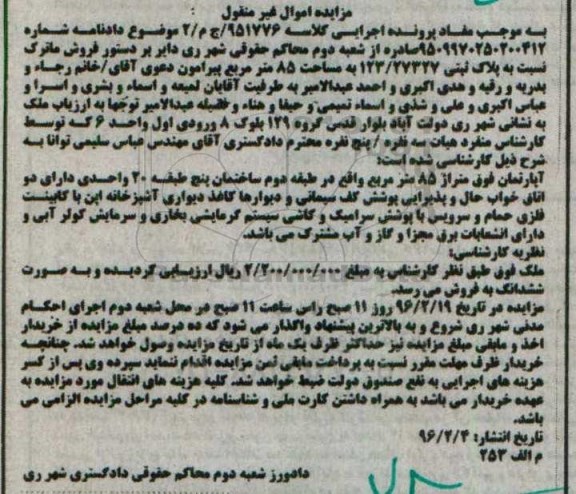 مزایده اموال غیر منقول
به موجب مفاد پرونده اجرایی کلاسه ۹۵۱۷۷۶/ج م/۲ موضوع دادنامه شماره
۹۵۰۹۹۷۰۲۵۰۲۰۰۴۱۲صادره از شعبه دوم محاکم حقوقی شهر ری دایر بر دستور فروش ماترک
نسبت به پلاک ثبتی ۱۲۳/۲۷۳۲۷ به مساحت ۸۵ متر مربع پیرامون دعوی آقای/خانم رجاء و
بدریه و رقیه و هدی اکبری و احمد عبدالامیر به طرفیت آقایان لمیعه و اسماء و بشری و اسرا و
عباس اکبری و علی و شذی و اسماء تمیمی و حیفا و هناء و فضیله عبدالامیر توجها به ارزیاب ملک
به نشانی شهر ری دولت آباد بلوار قدس گروه ۱۲۹ بلوک ۸ ورودی اول واحد ۶ که توسط
کارشناس منفرد هیات سه نفره / پنج نفره محترم دادگستری آقای مهندس عباس سلیمی توانا به
شرح ذیل کارشناسی شده است:
آپارتمان فوق متراژ ۸۵ متر مربع واقع در طبقه دوم ساختمان پنج طبقه ۲۰ واحدی دارای دو
اتاق خواب حال و پذیرایی پوشش کف سیمانی و دیوارها کاغذ دیواری آشپزخانه اپن با کابینت
فلزی حمام و سرویس با پوشش سرامیک و کاشی سیستم گرمایشی بخاری و سرمایش کولر آبی و
دارای انشعابات برق مجزا و گاز و آب مشترک می باشد.
نظریه کارشناسی:
ملک فوق طبق نظر کارشناس به مبلغ ۲/۲۰۰/۰۰۰/۰۰۰ ریال ارزیابی گردیده و به صورت
ششدانگ به فروش می رسد.
مزایده در تاریخ ۹۶/۲/۱۹ روز ۱۱ صبح راس ساعت ۱۱ صبح در محل شعبه دوم اجرای احکام
مدنی شهر ری شروع و به بالاترین پیشنهاد واگذار می شود که ده درصد مبلغ مزایده از خریدار
اخذ و مابقی مبلغ مزایده نیز حداکثر ظرف یک ماه از تاریخ مزایده وصول خواهد شد. چنانچه
خریدار ظرف مهلت مقرر نسبت به پرداخت مابقی ثمن مزایده اقدام ننماید سپرده وی پس از کسر
هزینه های اجرایی به نفع صندوق دولت ضبط خواهد شد. کلیه هزینه های انتقال مورد مزایده به
عهده خریدار می باشد به همراه داشتن کارت ملی و شناسنامه در کلیه مراحل مزایده الزامی می
باشد.
تاریخ انتشار: ۹۶/۲/۴
م الف ۲۵۳
دادورز شعبه دوم محاکم حقوقی دادگستری شهر ری